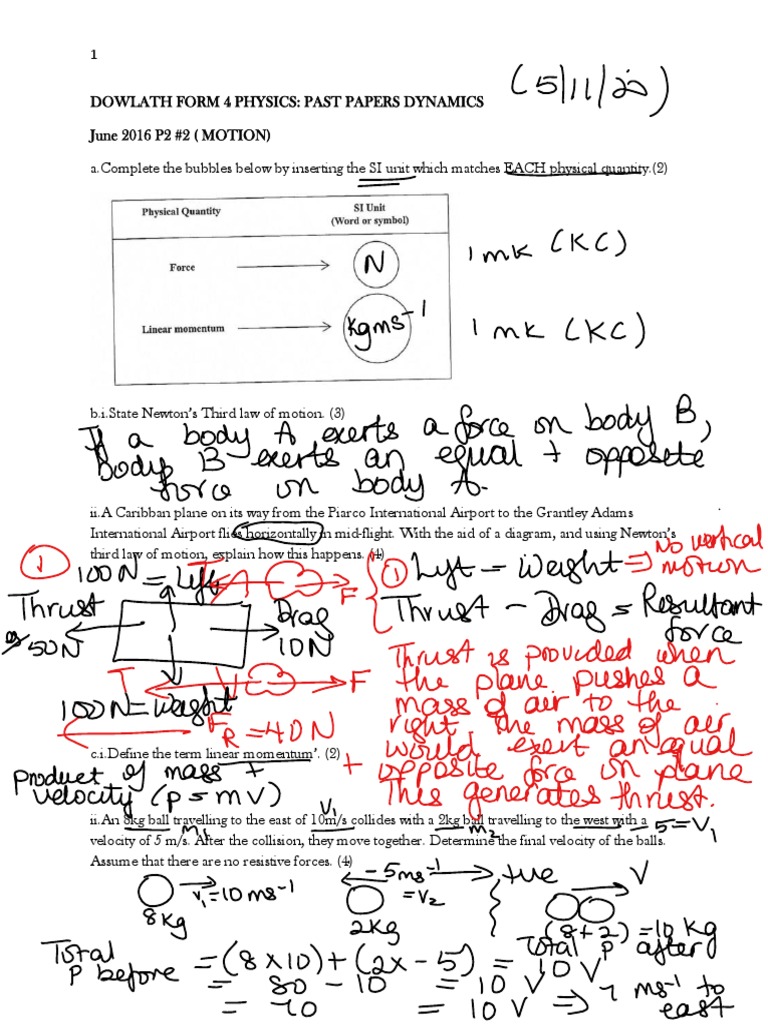 1
(5/11/20)
DOWLATH FORM 4 PHYSICS: PAST PAPERS DYNAMICS
June 2016 P2 #2 ( MOTION)
a.Complete the bubbles below by inserting the SI unit which matches EACH physical quantity.(2)
Physical Quantity
SI Unit
(Word or symbol)
Force
N
1 mk (KC)
Linear momentum
kgms-1
1 mk (KC)
b.i.State Newton's Third law of motion. (3)
If a body A exerts a force on body B,
body B exerts an equal + opposite
force on body A.
ii.A Caribban plane on its way from the Piarco International Airport to the Grantley Adams
International Airport flies horizontally in mid-flight. With the aid of a diagram, and using Newton's
third law of motion, explain how this happens. (4)
1
100N = Lift
F
1 Lift = Weight => No vertical
motion
Thrust
50N
Drag
10N
Thrust - Drag = Resultant
force
T
F
100N = weight
FR = 40N
Thrust is provided when
the plane pushes a
mass of air to the
right the mass of air
would exert an equal
+ opposite force on plane
This generates thrust.
c.i.Define the term linear momentum'. (2)
Product of mass +
velocity (p = mv)
ii.An 8kg ball travelling to the east of 10m/s collides with a 2kg ball travelling to the west with a
V1
m1
m2
-5 = V1
velocity of 5 m/s. After the collision, they move together. Determine the final velocity of the balls.
Assume that there are no resistive forces. (4)
8kg
V1 = 10 ms-1
-5ms-1
= V2
2kg
+ve
V
(8 + 2) = 10 kg
Total P before = (8 x 10) + (2x - 5) = 10 V
Total P after
= 80 - 10 = 10 V
= 70 = 10 V => 7 ms-1 to
east